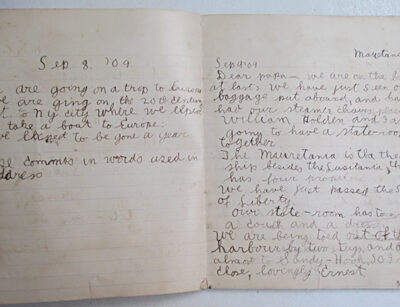 Sep. 8. '09
are going on a trip to Europe
we are going on the 20th Century
to N.y city where we expect
take a boat to Europe.
we expect to be gone a year
commas in words used in
address
Mauretan
Sep 9 '09
Dear papa— we are on the
at last. we have just seen o
baggage put aboard, and ha
had our steamer chairs
William Holden and I a
going to have a state-roo
together
The Mauretania is the
ship besides the Lusitania th
has four
We have just passed the S
of Liberty.
our state-room has
a couch and a
we are being toed out of th
harbour by two tugs, and a
almost to Sandy-Hook, So I
close, lovingly Ernest